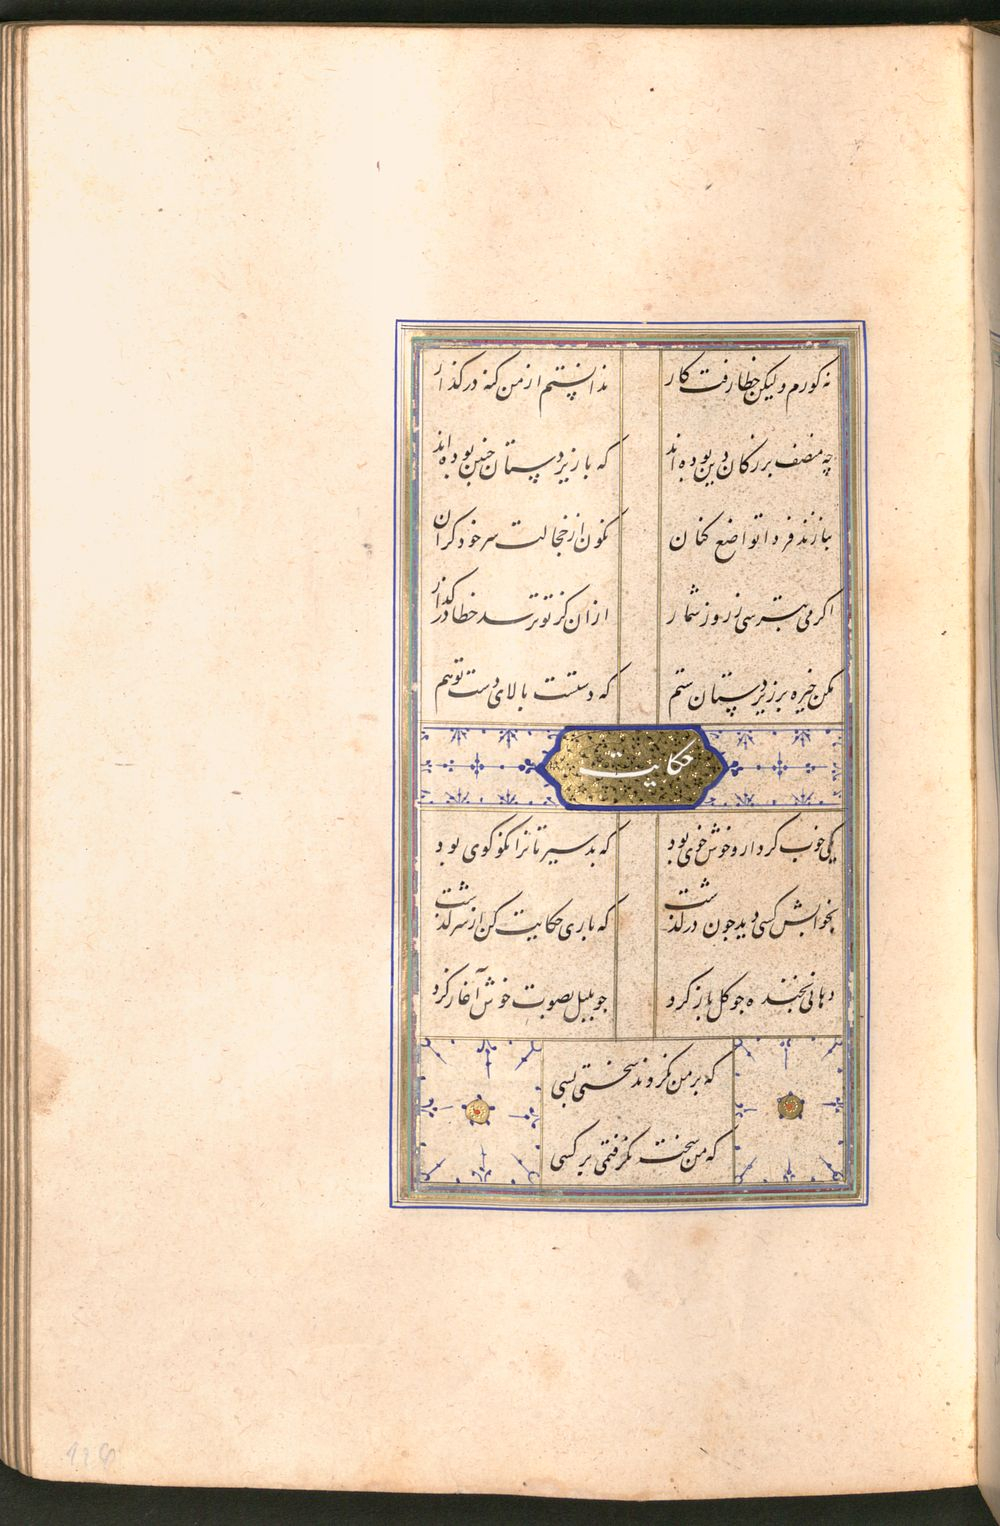 نه کورم ولیکن خطا رفت کار
ندانستم از من کنه درکذار
چه منصف بزرکان دین بوده اند
که با زیردستان چنین بوده اند
بنازند فردا تواضع کنان
نکون از خجالت سر خود کران
اکر می بترسی ز روز شمار
ازان کز تو ترسد خطا درکذار
مکن خیره بر زیردستان ستم
که دستست بالای دست تو هم
حکایت
یکی خوب کردار و خوش خوی بود
که بد سیرتانرا نکو کوی بود
بخوابش کسی دید جون درکذشت
که باری حکایت کن از سرکذشت
دهانی بخنده جو کل باز کرد
جو بلبل بصوت خوش آغاز کرد
که بر من نکردند سختی بسی
که من سخت نکرفتمی بر کسی